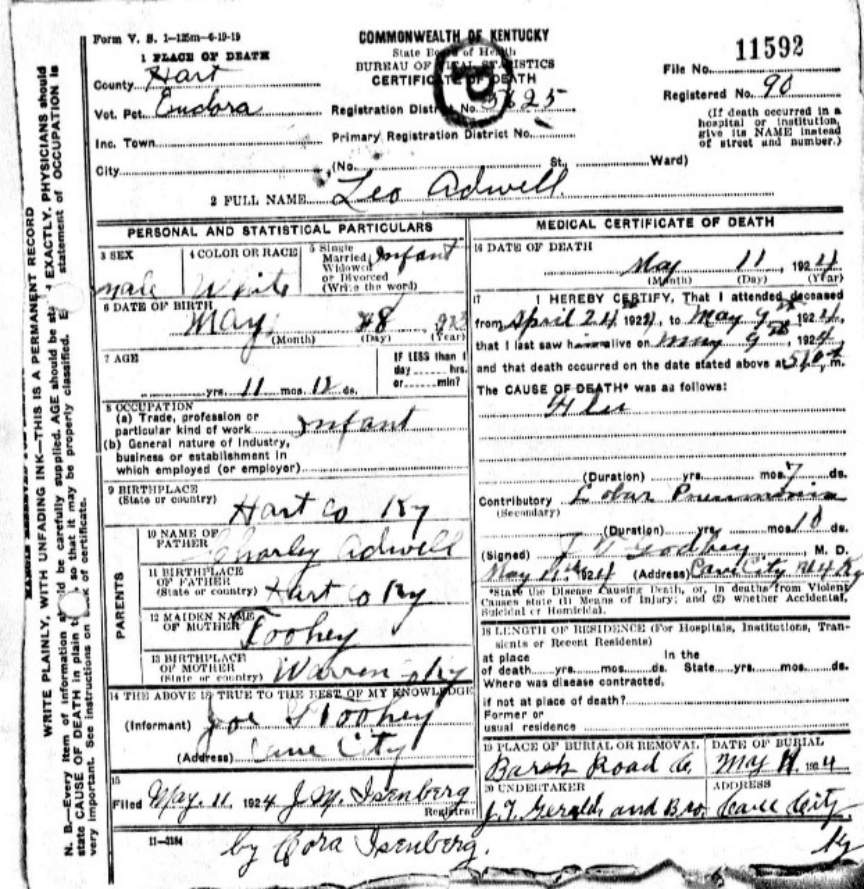 Form V. S. 1—125m—6-19-19
COMMONWEALTH OF KENTUCKY
State Board of Health
BUREAU OF VITAL STATISTICS
CERTIFICATE OF DEATH
File No. 11592
Registered No. 90
(If death occurred in a hospital or institution, give its NAME instead of street and number.)
1 PLACE OF DEATH
County Hart
Vot. Pct. Eudora
Registration District No. 5625
Inc. Town
Primary Registration District No.
City (No. St., Ward)
2 FULL NAME Leo Adwell
PERSONAL AND STATISTICAL PARTICULARS
3 SEX male
4 COLOR OR RACE White
5 Single Married Widowed or Divorced (Write the word) Infant
6 DATE OF BIRTH May 28 (Month) (Day) (Year)
7 AGE yrs. 11 mos. 12 ds.
IF LESS than 1 day hrs. or min?
8 OCCUPATION
(a) Trade, profession or particular kind of work Infant
(b) General nature of Industry, business or establishment in which employed (or employer)
9 BIRTHPLACE (State or country) Hart Co Ky
PARENTS
10 NAME OF FATHER Charley Adwell
11 BIRTHPLACE OF FATHER (State or country) Hart Co Ky
12 MAIDEN NAME OF MOTHER Toohey
13 BIRTHPLACE OF MOTHER (State or country) Warren Ky
14 THE ABOVE IS TRUE TO THE BEST OF MY KNOWLEDGE
(Informant) Joe T Toohey
(Address) Cave City
15
Filed May. 11, 1924 J. M. Isenberg Registrar
by Cora Isenberg.
11—3184
MEDICAL CERTIFICATE OF DEATH
16 DATE OF DEATH
May 11, 1924
(Month) (Day) (Year)
17 I HEREBY CERTIFY, That I attended deceased
from April 24 1924, to May 9th 1924,
that I last saw h alive on May 9th, 1924
and that death occurred on the date stated above at m.
The CAUSE OF DEATH* was as follows:
Flu
(Duration) yrs. mos. 7 ds.
Contributory (Secondary) Lobar Pneumonia
(Duration) yrs. mos. 10 ds.
(Signed) J T Godbey, M. D.
May 11th 1924 (Address) Cave City Ky
*State the Disease Causing Death, or, in deaths from Violent Causes state (1) Means of Injury; and (2) whether Accidental, Suicidal or Homicidal.
18 LENGTH OF RESIDENCE (For Hospitals, Institutions, Transients or Recent Residents)
at place of death yrs. mos. ds. In the State yrs. mos. ds.
Where was disease contracted,
if not at place of death?
Former or usual residence
19 PLACE OF BURIAL OR REMOVAL
Road
DATE OF BURIAL
May 11 1924
20 UNDERTAKER
J. T. Geralds and Bro.
ADDRESS
Cave City, Ky
WRITE PLAINLY, WITH UNFADING INK—THIS IS A PERMANENT RECORD
N. B.—Every item of information should be carefully supplied. AGE should be stated EXACTLY. PHYSICIANS should
state CAUSE OF DEATH in plain so that it may be properly classified. statement of OCCUPATION is
very important. See instructions on back of certificate.